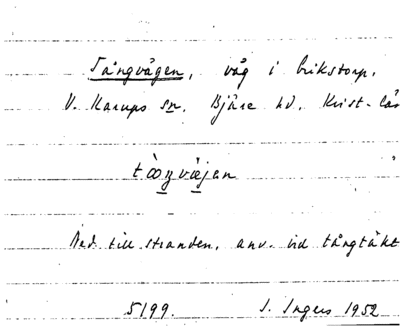 Tångvägen, väg i Erikstorp,
V. Karups sn, Bjäre hd, Krist. län
tɷŋvæjən
Ned till stranden, anv. vid tångtäkt
5199. I. Ingers 1952